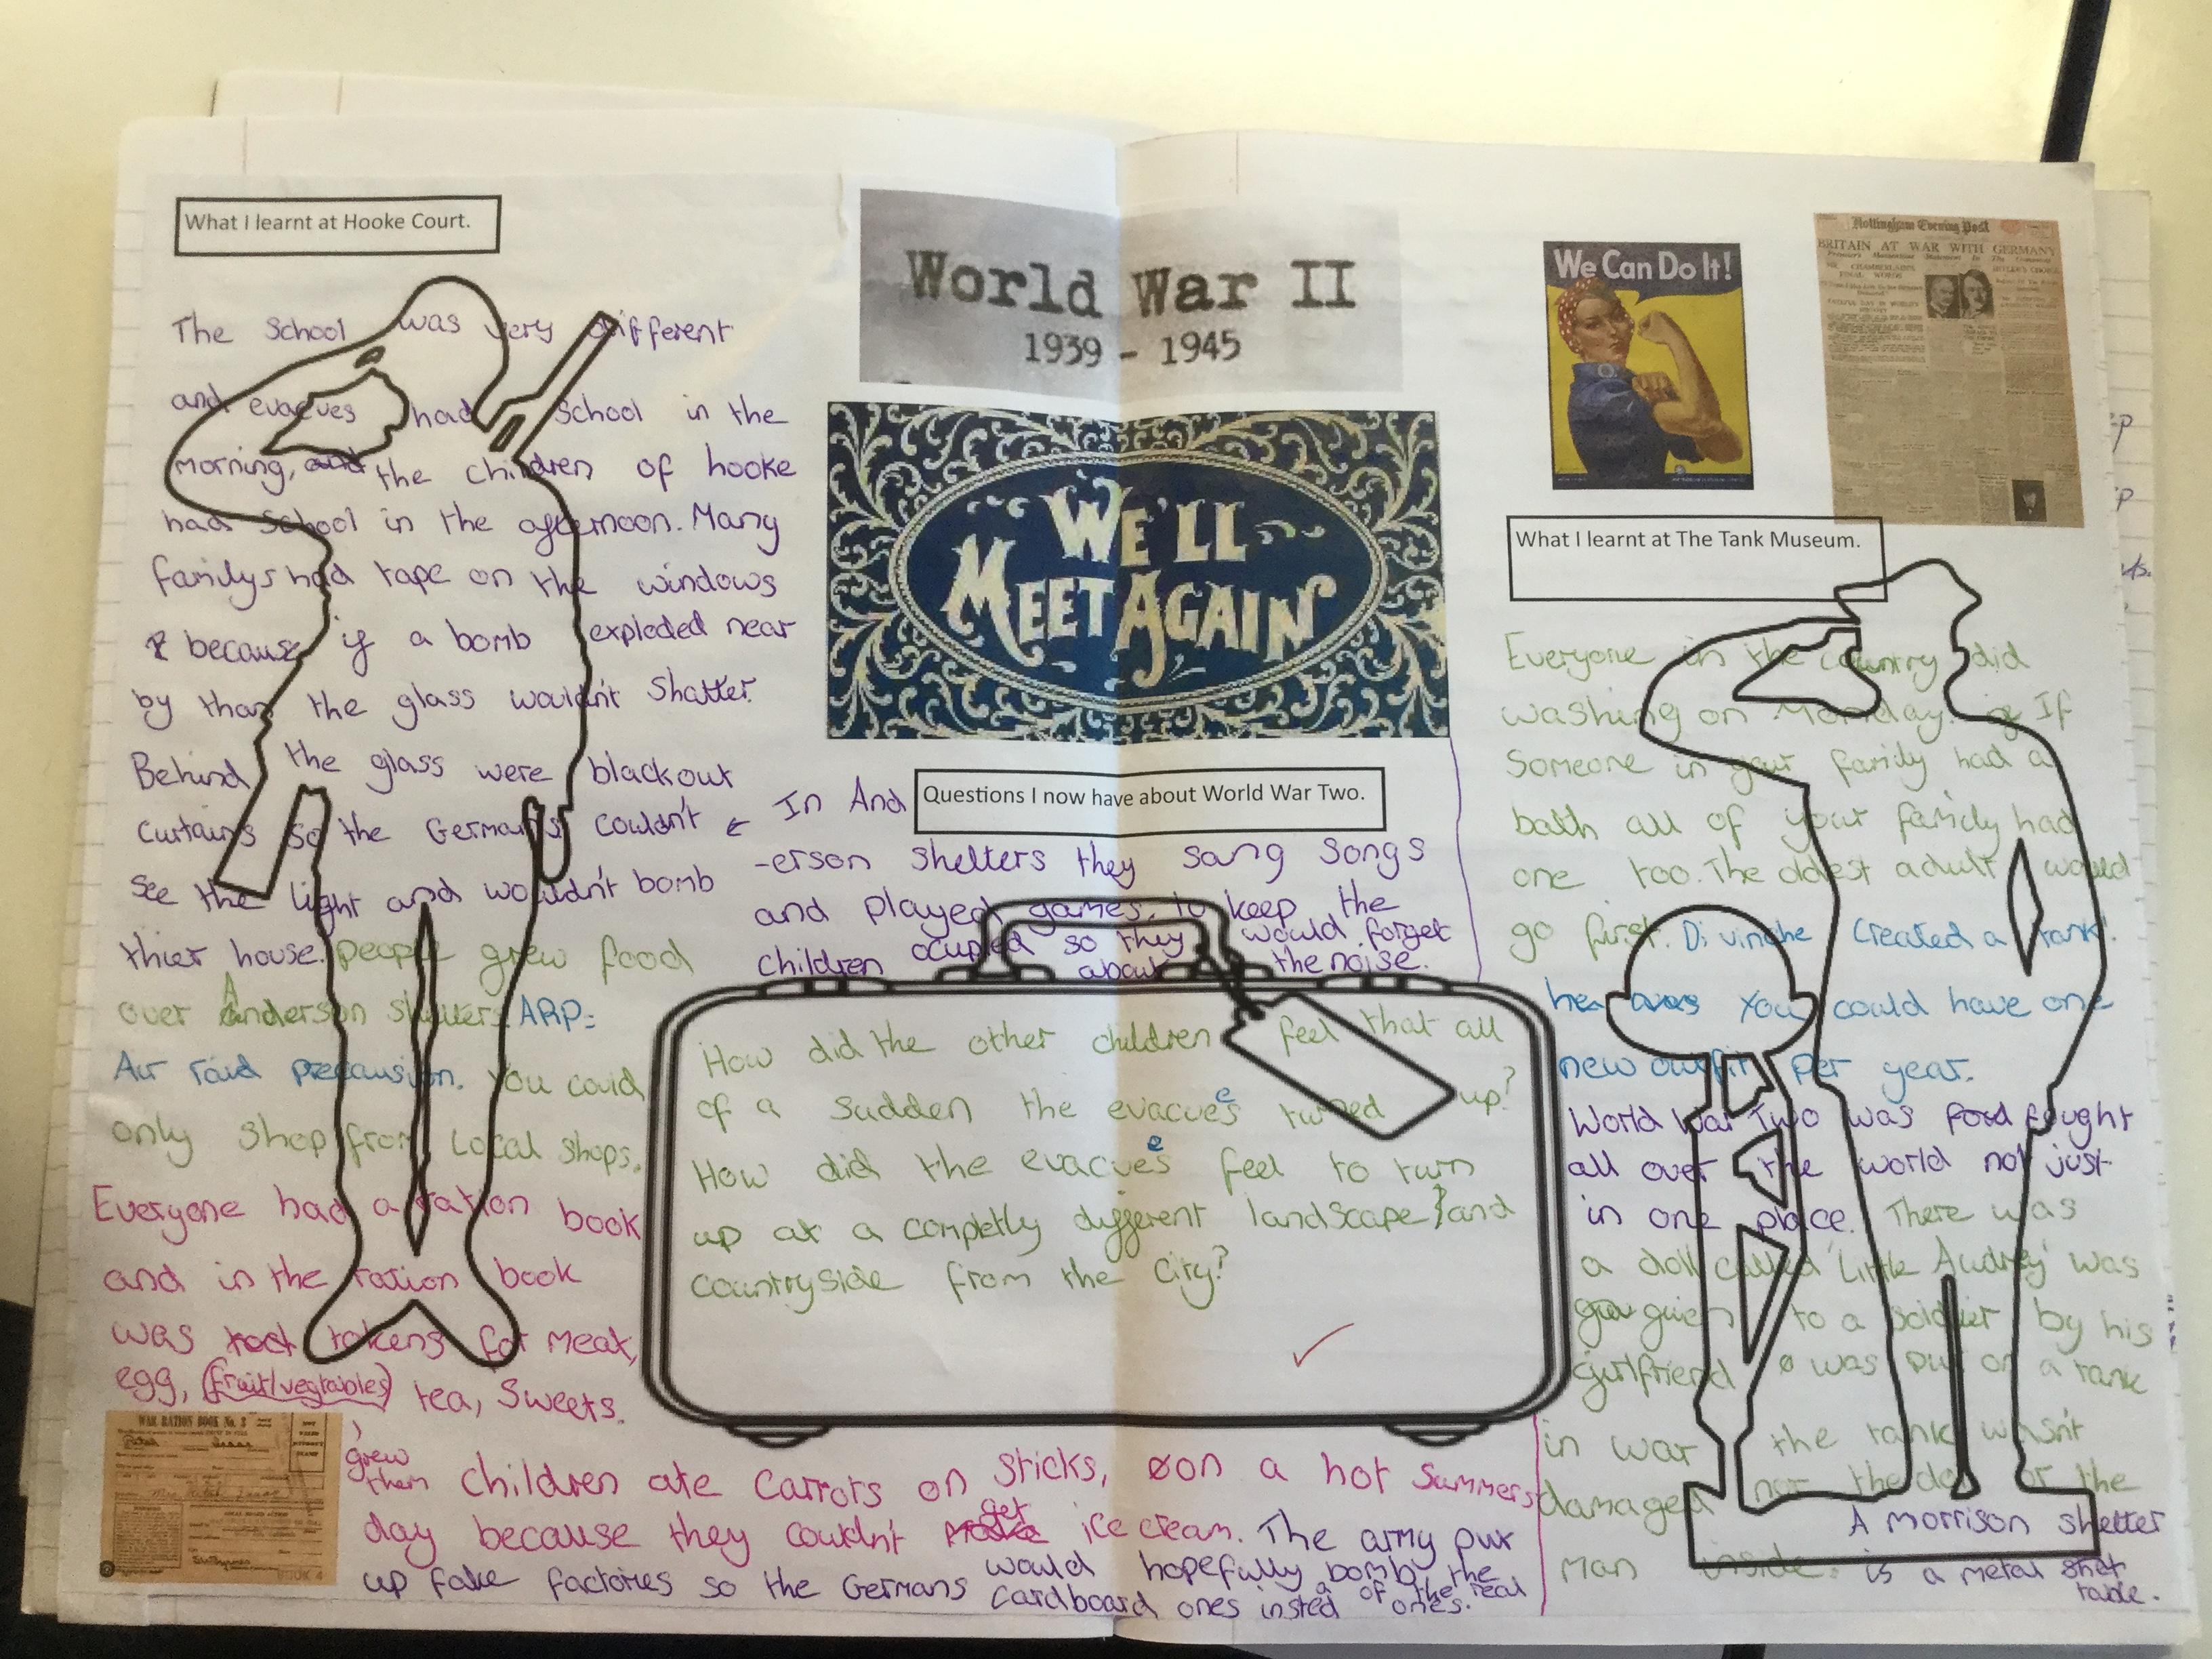 What I learnt at Hooke Court.
The School was very different
and evacues had School in the
morning, and the children of hooke
had School in the afternoon. Many
familys had tape on the windows
because if a bomb exploded near
by than the glass wouldn't Shatter.
Behind the glass were blackout
Curtains so the Germans couldn't
see the light and wouldn't bomb
thier house. people grew food
over Anderson shelters. ARP=
Air raid precausion. You could
only shop from Local shops.
Everyone had a ration book
and in the ration book
was tokens for meat,
egg, (fruit/vegtables) tea, Sweets.
grew
them
Children ate Carrots on Sticks, on a hot Summers
day because they couldn't get ice cream. The army put
up fake factories so the Germans would hopefully bomb the
cardboard ones insted of the real
ones.
WAR RATION BOOK No. 3
World War II
1939 - 1945
WE'LL
MEET AGAIN
Questions I now have about World War Two.
In And
-erson shelters they sang songs
and played games, to keep the
children ocupied so they would forget
about the noise.
How did the other children feel that all
of a sudden the evacuees turned up?
How did the evacuees feel to turn
up at a completly different landscape? and
countryside from the city?
We Can Do It!
Nottingham Evening Post
BRITAIN AT WAR WITH GERMANY
What I learnt at The Tank Museum.
Everyone in the country did
washing on Monday. If
Someone in your family had a
bath all of your family had
one too. The oldest adult would
go first. Divinche Created a tank!
he was You could have one
new outfit per year.
World War Two was fought
all over the world not just
in one place. There was
a doll called 'Little Audrey' was
given to a soldier by his
girlfriend was put on a tank
in war the tank wasn't
damaged nor the doll or the
man inside.
A morrison shelter
is a metal
table.